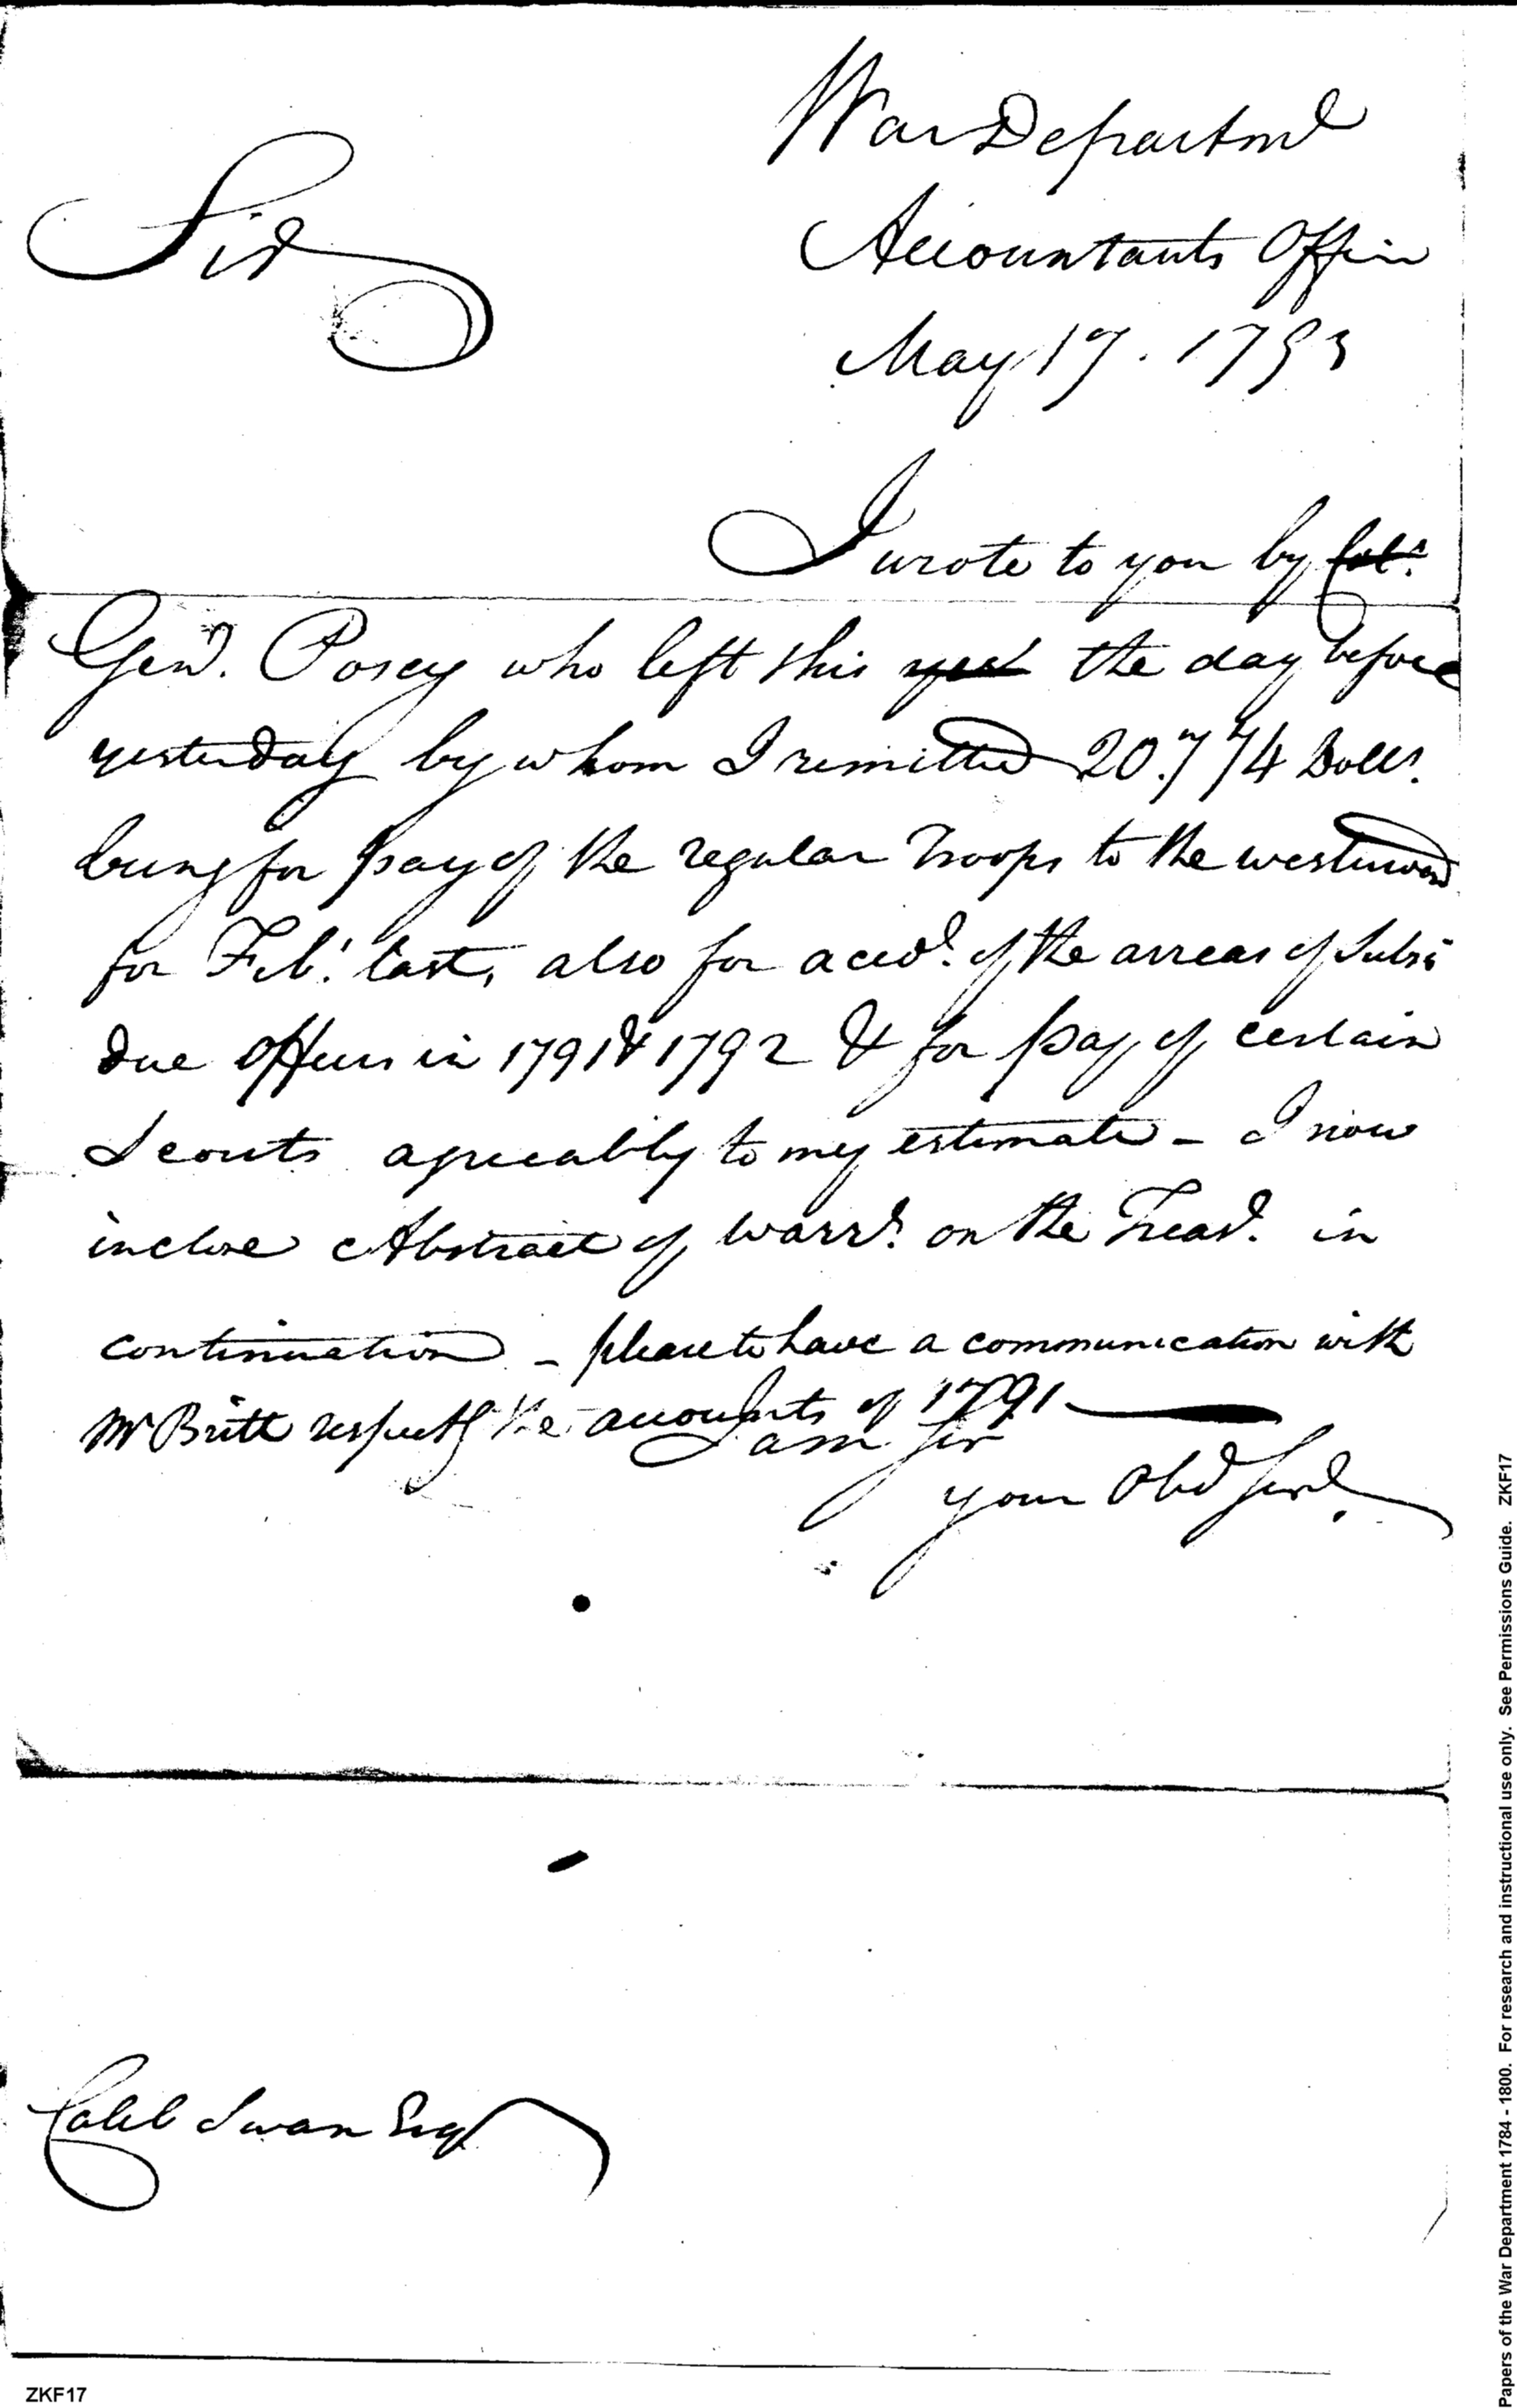 War Departmt
Accountants Office
Sir
May 17. 1793
I wrote to you by Colo.
Genl. Posey who left this yest the day before
yesterday by whom I remitted 20.774 Dolls.
being for pay of the regular Troops to the westward
for Feb! last, also for accot. of the arrears of Subs
due Officers in 1791 & 1792 & for pay of certain
Scouts agreeably to my estimate - I now
inclose Abstract of Warrts. on the Treasr. in
continuation - please to have a communication with
Mr Britt respectg the accounts of 1791
I am Sir
your Obd Servt.
Caleb Swan Esq
ZKF17
Papers of the War Department 1784 - 1800. For research and instructional use only. See Permissions Guide. ZKF17